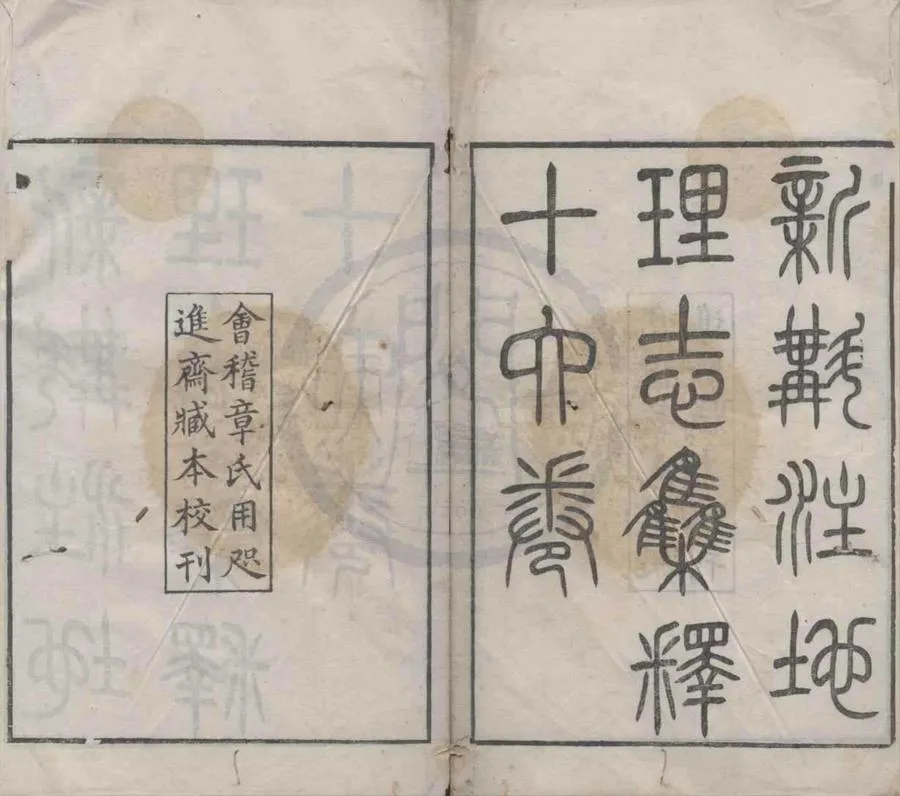 新斠注地
理志雧釋
十六卷
會稽章氏用咫
進齋臧本校刊